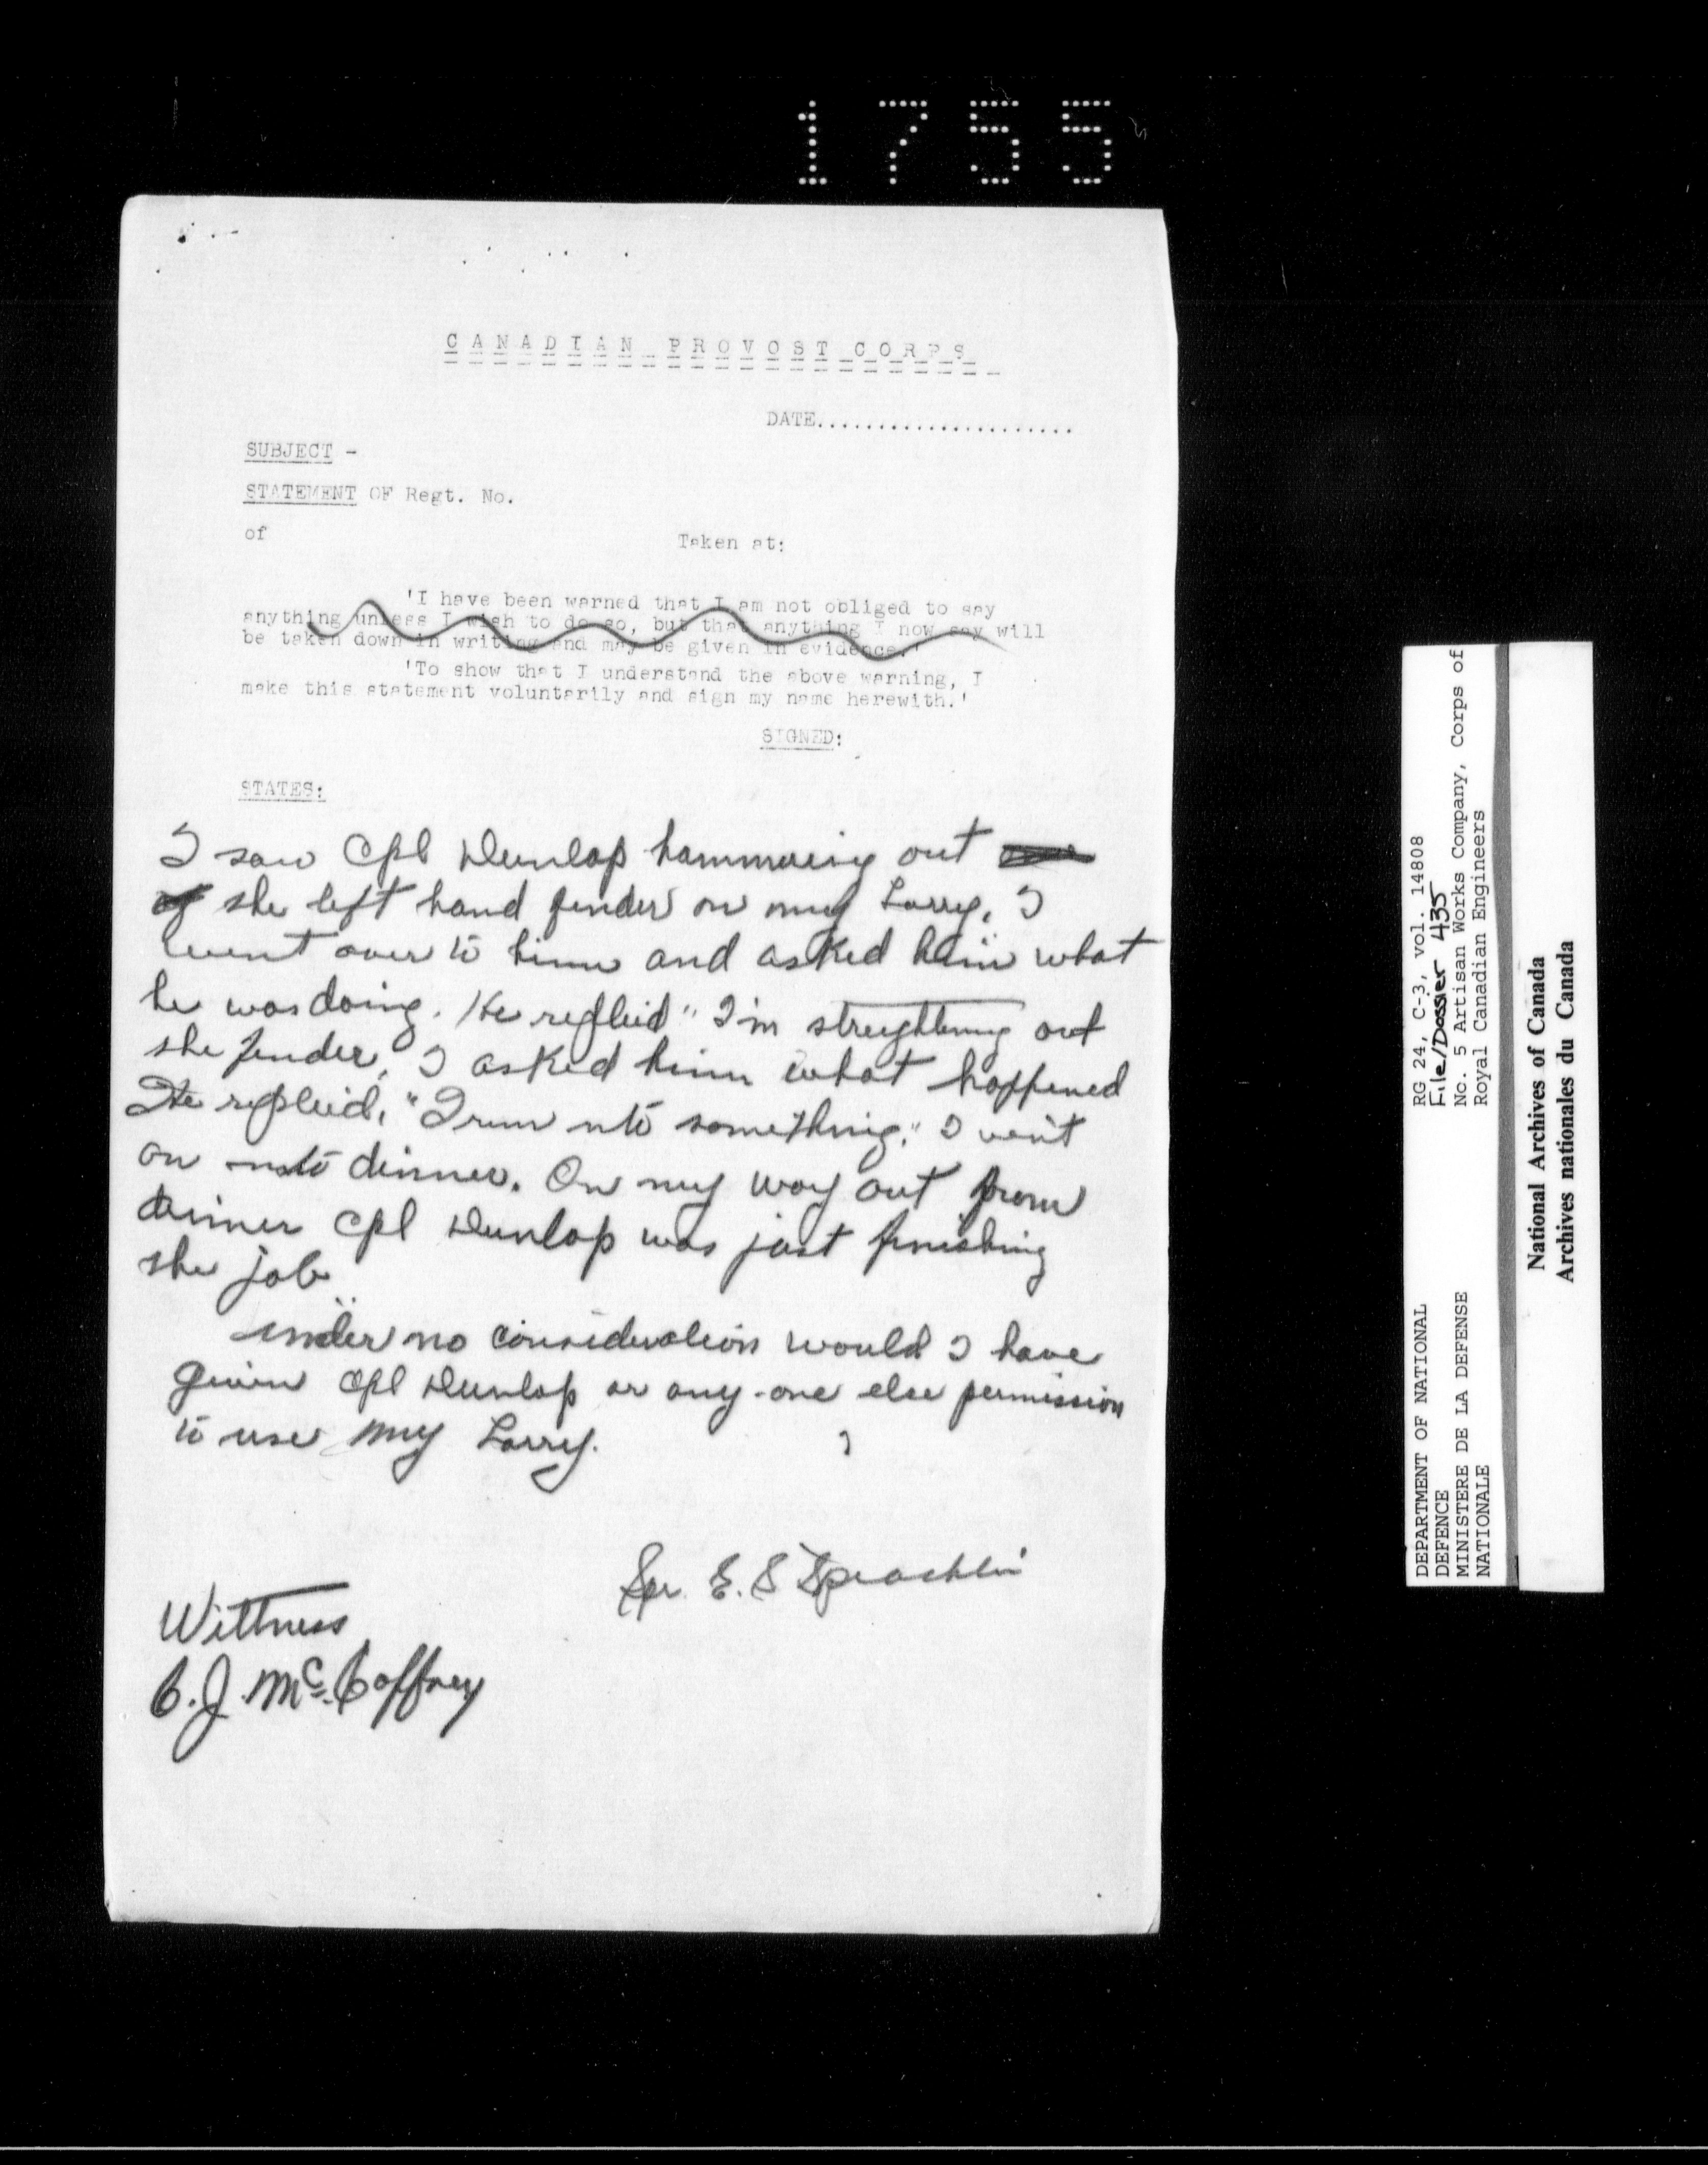 1755
CANADIAN PROVOST CORPS
DATE......................
SUBJECT -
STATEMENT OF Regt. No.
of Taken at:
'I have been warned that I am not obliged to say
anything unless I wish to do so, but that anything I now say will
be taken down in writing and may be given in evidence.'
'To show that I understand the above warning, I
make this statement voluntarily and sign my name herewith.'
SIGNED:
STATES:
I saw Cpl Dunlop hammering out
the left hand fender on my Lorry. I
went over to him and asked him what
he was doing. He replied "I'm streightening out
the fender, I asked him what happened
He replied, "I run into something." I went
on into dinner. On my way out from
dinner Cpl Dunlop was just finishing
the job.
Under no consideration would I have
given Cpl Dunlop or any-one else permission
to use my Lorry.
Spr. E. S Sprachlin
Wittness
C. J. McCaffrey
RG 24, C-3, vol. 14808
File/Dossier 435
No. 5 Artisan Works Company, Corps of
Royal Canadian Engineers
DEPARTMENT OF NATIONAL
DEFENCE
MINISTERE DE LA DEFENSE
NATIONALE
National Archives of Canada
Archives nationales du Canada